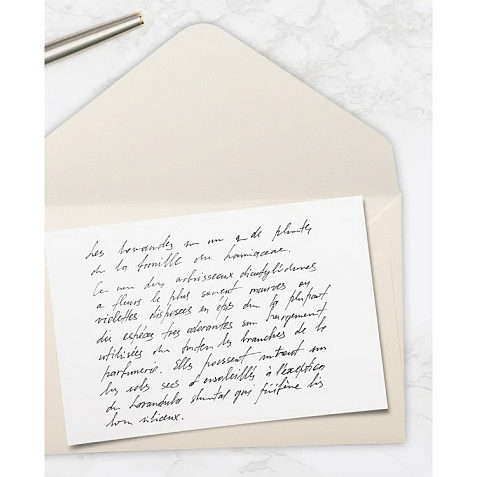 Les lavandes sont un g. de plantes
de la famille des Lamiaceae.
Ce sont des arbrisseaux dicotylédones
à fleurs le plus souvent mauves ou
violettes disposées en épis dont la plupart
des espèces très odorantes sont largement
utilisées dans toutes les branches de la
parfumerie. Elles poussent surtout sur
les sols secs et ensoleillés à l'exception
de Lavandula stoechas qui préfère les
sols siliceux.